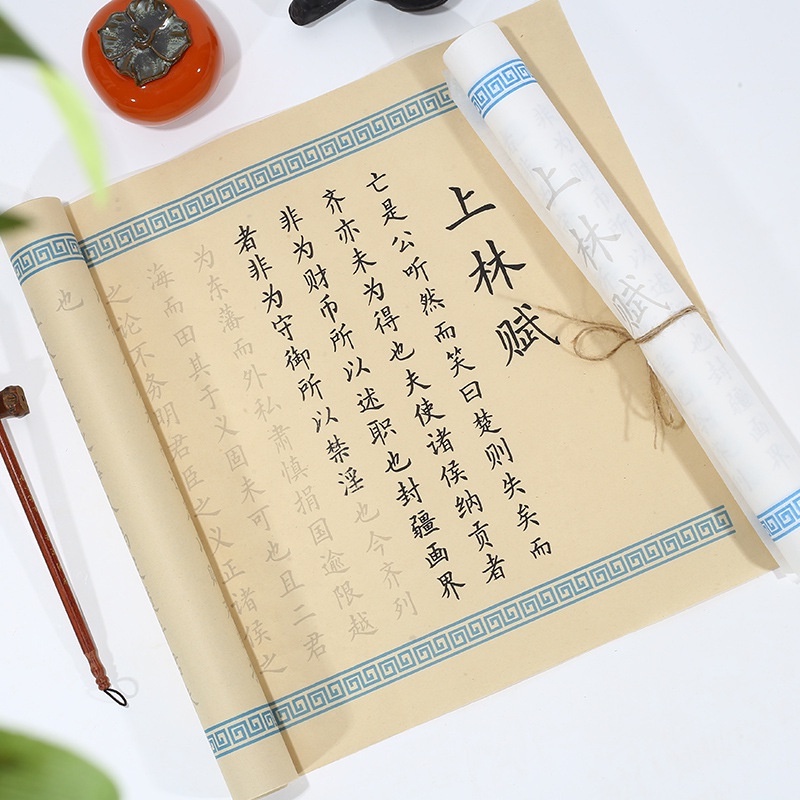 上林赋
亡是公听然而笑曰楚则失矣而
齐亦未为得也夫使诸侯纳贡者
非为财币所以述职也封疆画界
者非为守御所以禁淫也今齐列
为东藩而外私肃慎捐国逾限越
海而田其于义固未可也且二君
之论不务明君臣之义正诸侯之
也
上林赋